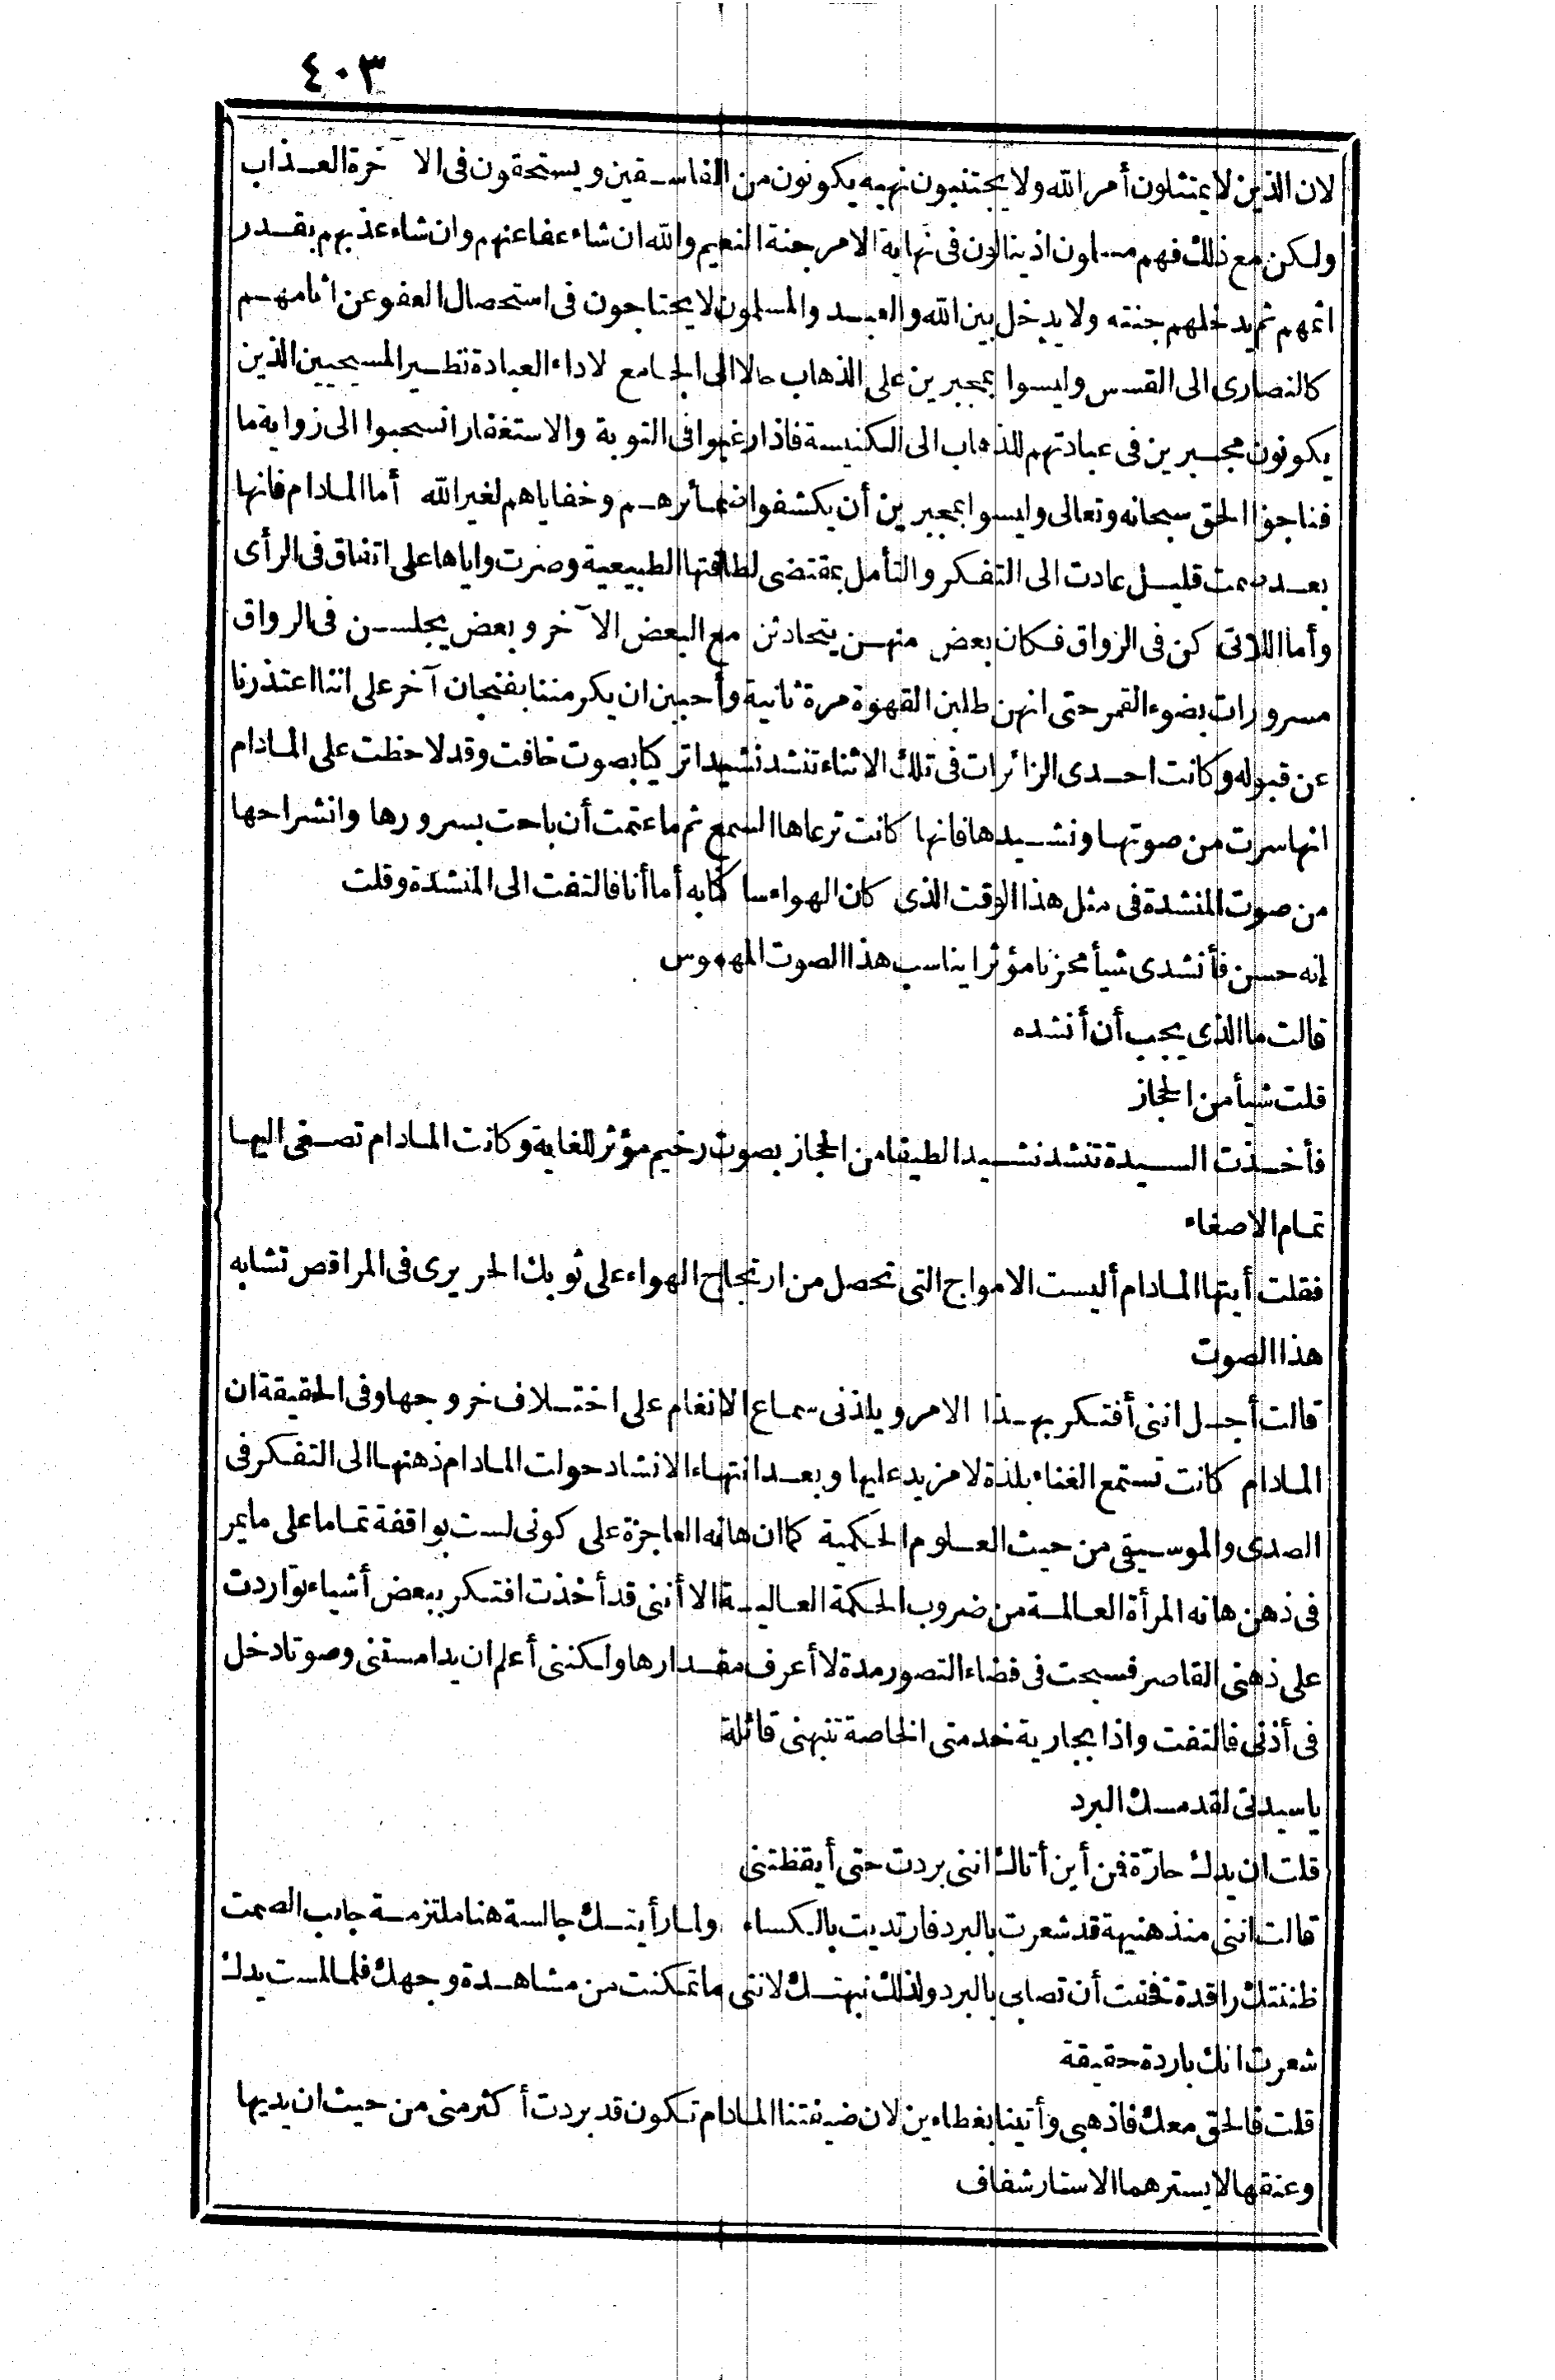 ٤٠٣
لان الذين لا يمتثلون أمر الله ولا يجتنبون نهيه يكونون من الفاسقين ويستحقون فى الآخرة العذاب
ولكن مع ذلك فهم مسلون اذ ينالون فى نهاية الامر جنة النعيم والله ان شاء عفا عنهم وان شاء عذبهم بقدر
اثمهم ثم يدخلهم جنته ولا يدخل بين الله والعبد والمسلمون لا يحتاجون فى استحصال العفو عن اثامهم
كالنصارى الى القسس وليسوا بمجبرين على الذهاب حالا الى الجامع لاداء العبادة نظير المسيحيين الذين
يكونون مجبرين فى عبادتهم للذهاب الى الكنيسة فاذا رغبوا فى التوبة والاستغفار انسحبوا الى زواية ما
فناجوا الحق سبحانه وتعالى وليسوا بمجبرين أن يكشفوا ضمائرهم وخفاياهم لغير الله أما المادام فانها
بعد صمت قليل عادت الى التفكر والتأمل بمقتضى لطافتها الطبيعية وصرت واياها على اتفاق فى الرأى
وأما اللاتى كن فى الزواق فكان بعض منهن يتحادثن مع البعض الآخر وبعض يجلسن فى الرواق
مسرورات بضوء القمر حتى انهن طلبن القهوة مرة ثانية وأحببن ان يكرمننا بفنجان آخر على اننا اعتذرنا
عن قبوله وكانت احدى الزائرات فى تلك الاثناء تنشد نشيدا تركيا بصوت خافت وقد لاحظت على المادام
انها سرت من صوتها ونشيدها فانها كانت ترعاها السمع ثم ما عتمت أن باحت بسرورها وانشراحها
من صوت المنشدة فى مثل هذا الوقت الذى كان الهواء ساكنا به أما أنا فالتفت الى المنشدة وقلت
إنه حسن فأنشدى شيأ محزنا مؤثرا يناسب هذا الصوت المهموس
قالت ما الذى يجب أن أنشده
قلت شيأ من الحجاز
فأخذت السيدة تنشد نشيدا لطيفا من الحجاز بصوت رخيم مؤثر للغاية وكانت المادام تصغى اليها
تمام الاصغاء
فقلت أيتها المادام أليست الامواج التى تحصل من ارتجاج الهواء على ثوبك الحريرى فى المراقص تشابه
هذا الصوت
قالت أجل اننى أفتكر بهذا الامر ويلذنى سماع الانغام على اختلاف خروجها وفى الحقيقة ان
المادام كانت تستمع الغناء بلذة لا مزيد عليها وبعد انتهاء الانشاد حولت المادام ذهنها الى التفكر فى
الصدى والموسيقى من حيث العلوم الحكمية كما ان هاته العاجزة على كونى لست بواقفة تماما على ما يمر
فى ذهن هاته المرأة العالمة من ضروب الحكمة العالية الا أننى قد أخذت افتكر ببعض أشياء تواردت
على ذهنى القاصر فسبحت فى فضاء التصور مدة لا أعرف مقدارها ولكننى أعلم ان يدا مستنى وصوتا دخل
فى أذنى فالتفت واذا بجارية خدمتى الخاصة تنبهنى قائلة
ياسيدتى لقد مسك البرد
قلت ان يدك حارّة فمن أين أتالك اننى بردت حتى أيقظتنى
قالت اننى منذ هنيهة قد شعرت بالبرد فارتديت بالكساء ولما رأيتك جالسة هنا ملتزمة جانب الصمت
ظننتك راقدة فخفت أن تصابى بالبرد ولذلك نبهتك لاننى ما تمكنت من مشاهدة وجهك فلما لمست يدك
شعرت انك باردة حقيقة
قلت فالحق معك فاذهبى وأتينا بغطاءين لان ضيفتنا المادام تكون قد بردت أكثر منى من حيث ان يديها
وعنقها لا يسترهما الا ستار شفاف